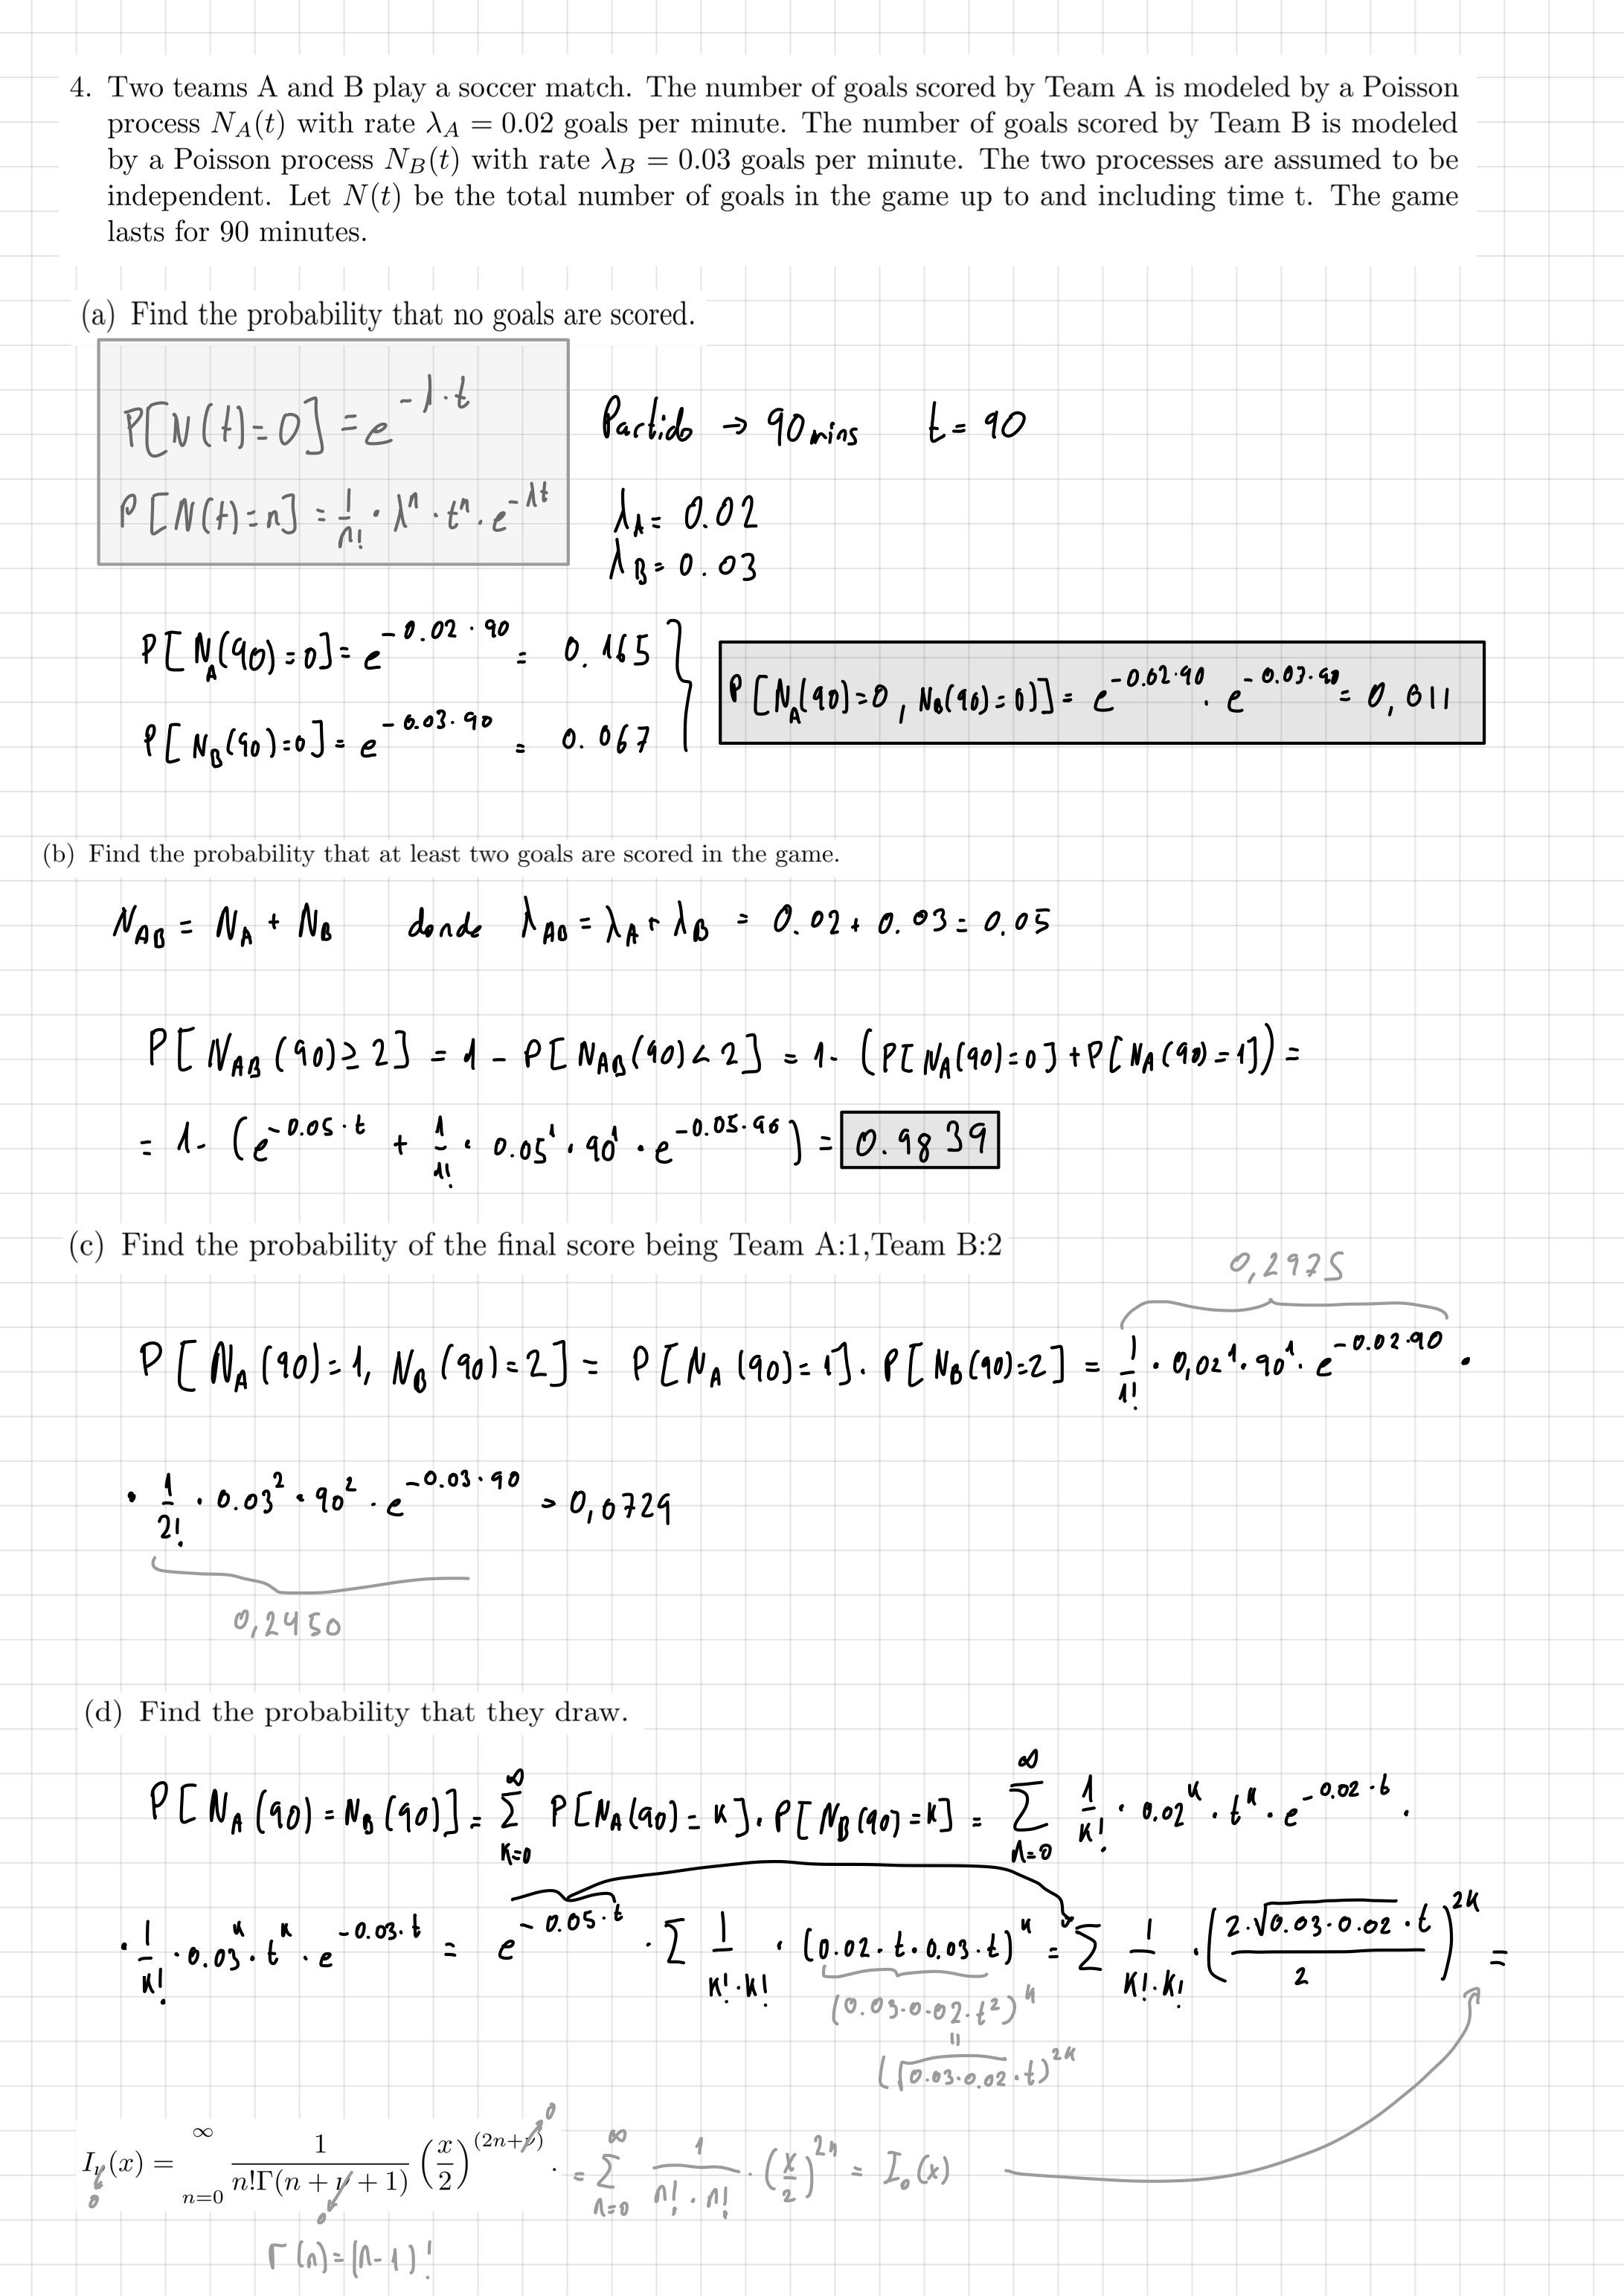 4. Two teams A and B play a soccer match. The number of goals scored by Team A is modeled by a Poisson
process N_A(t) with rate λ_A = 0.02 goals per minute. The number of goals scored by Team B is modeled
by a Poisson process N_B(t) with rate λ_B = 0.03 goals per minute. The two processes are assumed to be
independent. Let N(t) be the total number of goals in the game up to and including time t. The game
lasts for 90 minutes.
(a) Find the probability that no goals are scored.
P[N(t)=0] = e^{-λ·t}
P[N(t)=n] = 1/n! · λ^n · t^n · e^{-λt}
Partido → 90 mins t = 90
λ_A = 0.02
λ_B = 0.03
P[N_A(90)=0] = e^{-0.02·90} = 0.165
P[N_B(90)=0] = e^{-0.03·90} = 0.067
P[N_A(90)=0, N_B(90)=0)] = e^{-0.02·90} · e^{-0.03·90} = 0,011
(b) Find the probability that at least two goals are scored in the game.
N_AB = N_A + N_B donde λ_AB = λ_A + λ_B = 0.02 + 0.03 = 0.05
P[N_AB(90) ≥ 2] = 1 - P[N_AB(90) < 2] = 1 - (P[N_A(90)=0] + P[N_A(90)=1]) =
= 1 - (e^{-0.05·t} + 1/1! · 0.05^1 · 90^1 · e^{-0.05·90}) = 0.9839
(c) Find the probability of the final score being Team A:1,Team B:2
0,2975
P[N_A(90)=1, N_B(90)=2] = P[N_A(90)=1] · P[N_B(90)=2] = 1/1! · 0,02^1 · 90^1 · e^{-0.02·90} ·
· 1/2! · 0.03^2 · 90^2 · e^{-0.03·90} = 0,0729
0,2450
(d) Find the probability that they draw.
P[N_A(90) = N_B(90)] = ∑_{K=0}^{∞} P[N_A(90)=K] · P[N_B(90)=K] = ∑_{n=0}^{∞} 1/K! · 0.02^K · t^K · e^{-0.02·t} ·
· 1/K! · 0.03^K · t^K · e^{-0.03·t} = e^{-0.05·t} · ∑ 1/(K!·K!) · (0.02·t·0.03·t)^K = ∑ 1/(K!·K!) · (2·√(0.03·0.02)·t / 2)^{2K} =
(0.03·0.02·t²)^K
=
(√(0.03·0.02)·t)^{2K}
I_ν(x) = ∞ n=0 1/(n!Γ(n + ν + 1)) (x/2)^{(2n+ν)} . = ∑_{n=0}^{∞} 1/(n!·n!) · (x/2)^{2n} = I_0(x)
0 0 0
Γ(n) = (n-1)!